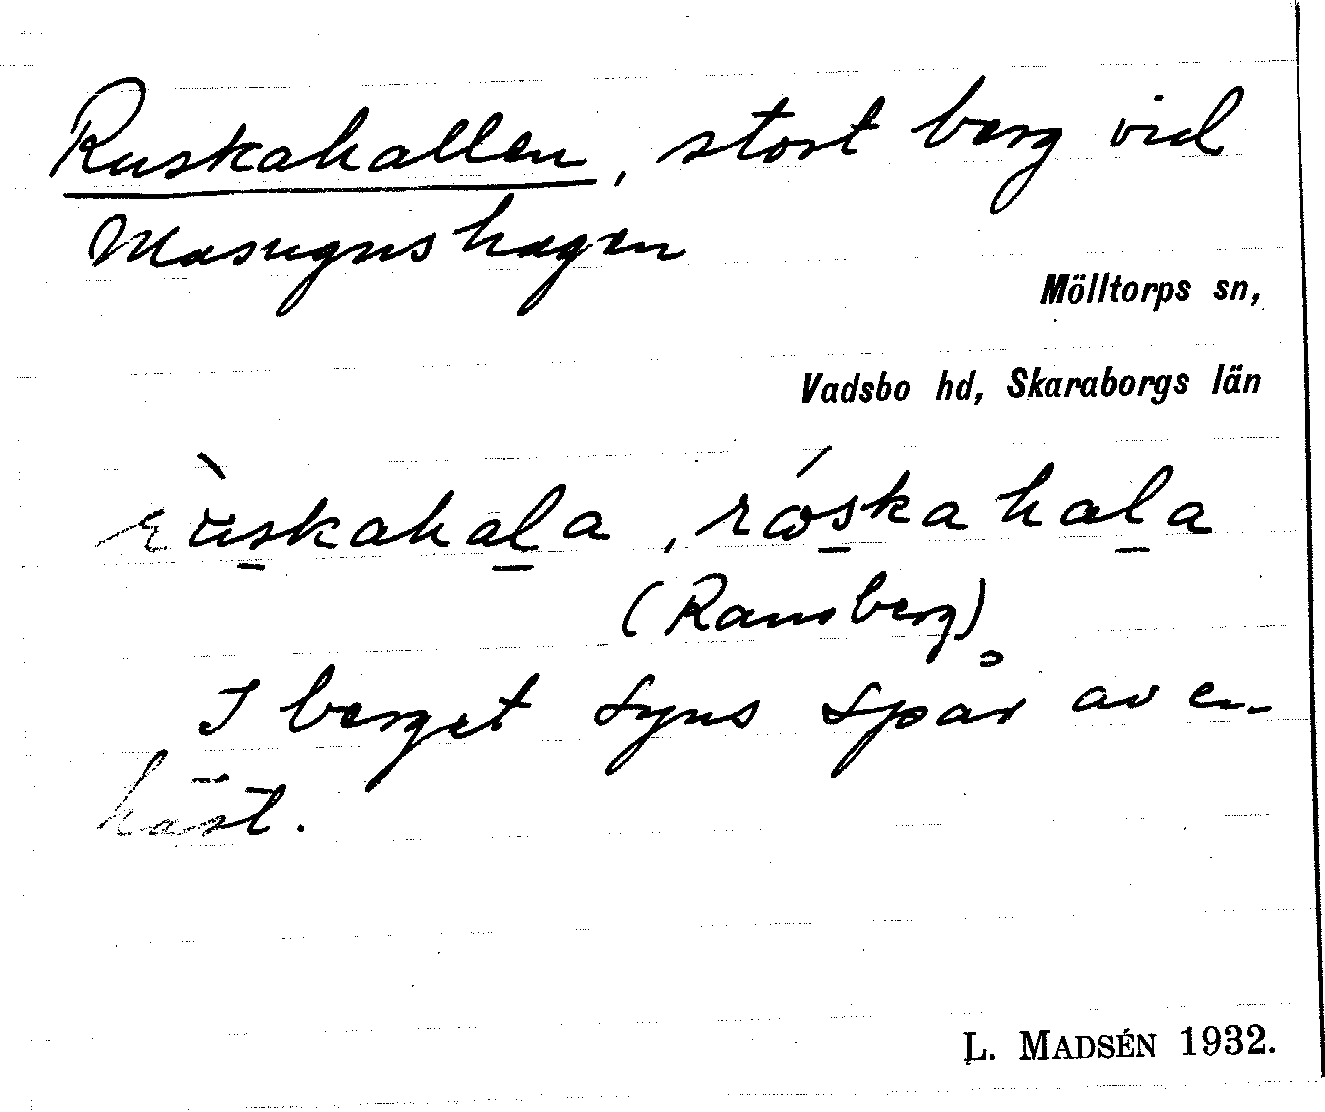 Ruskahallen, stort berg vid
Masugnshagen
Mölltorps sn,
Vadsbo hd, Skaraborgs län
rùs̲kahal̲a, rós̲kahal̲a
(Ransberg)
I berget syns spår av en
häst.
L. MADSÉN 1932.